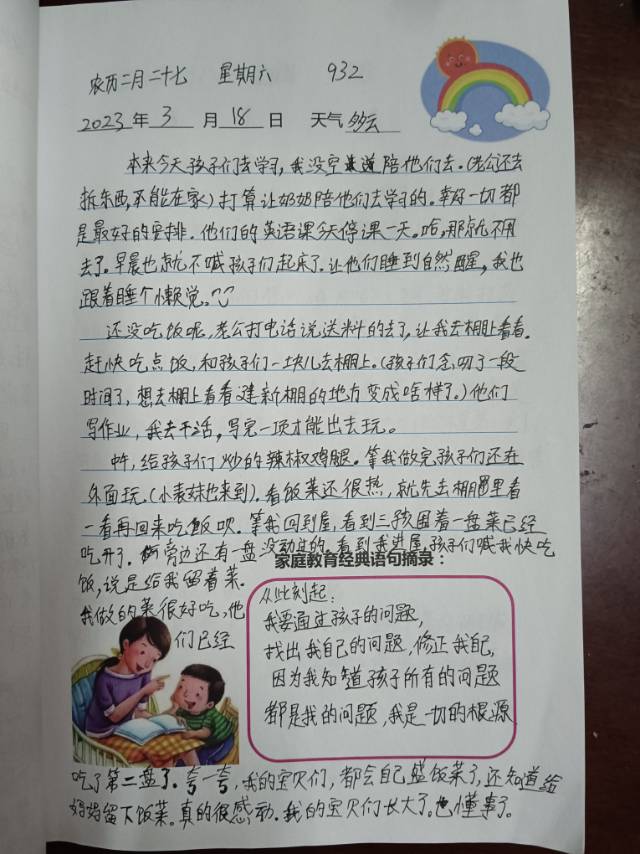 农历二月二十七 星期六 932
2023年 3 月 18 日 天气 多云
本来今天孩子们去学习,我没空道陪他们去。(老公还去
拆东西,不能在家)打算让奶奶陪他们去学习的。幸好一切都
是最好的安排。他们的英语课今天停课一天。哈,那就不用
去了。早晨也就不喊孩子们起床了。让他们睡到自然醒,我也
跟着睡个懒觉。
还没吃饭呢,老公打电话说送料的去了,让我去棚上看看。
赶快吃点饭,和孩子们一块儿去棚上。(孩子们念叨了一段
时间了,想去棚上看看建新棚的地方变成啥样了。)他们
写作业,我去干活,写完一项才能出去玩。
中午,给孩子们炒的辣椒鸡腿。等我做完孩子们还在
外面玩。(小表妹也来到)。看饭菜还很热,就先去棚里看
一看再回来吃饭呗。等我回到屋,看到三孩围着一盘菜已经
吃开了。旁边还有一盘没动过的,看到我进屋孩子们喊我快吃
饭,说是给我留着菜。
我做的菜很好吃,他
们已经
家庭教育经典语句摘录:
从此刻起:
我要通过孩子的问题,
找出我自己的问题,修正我自己,
因为我知道孩子所有的问题
都是我的问题,我是一切的根源
吃了第二盘了。夸一夸,我的宝贝们,都会自己盛饭菜了,还知道给
妈妈留下饭菜。真的很感动。我的宝贝们长大了。也懂事了。